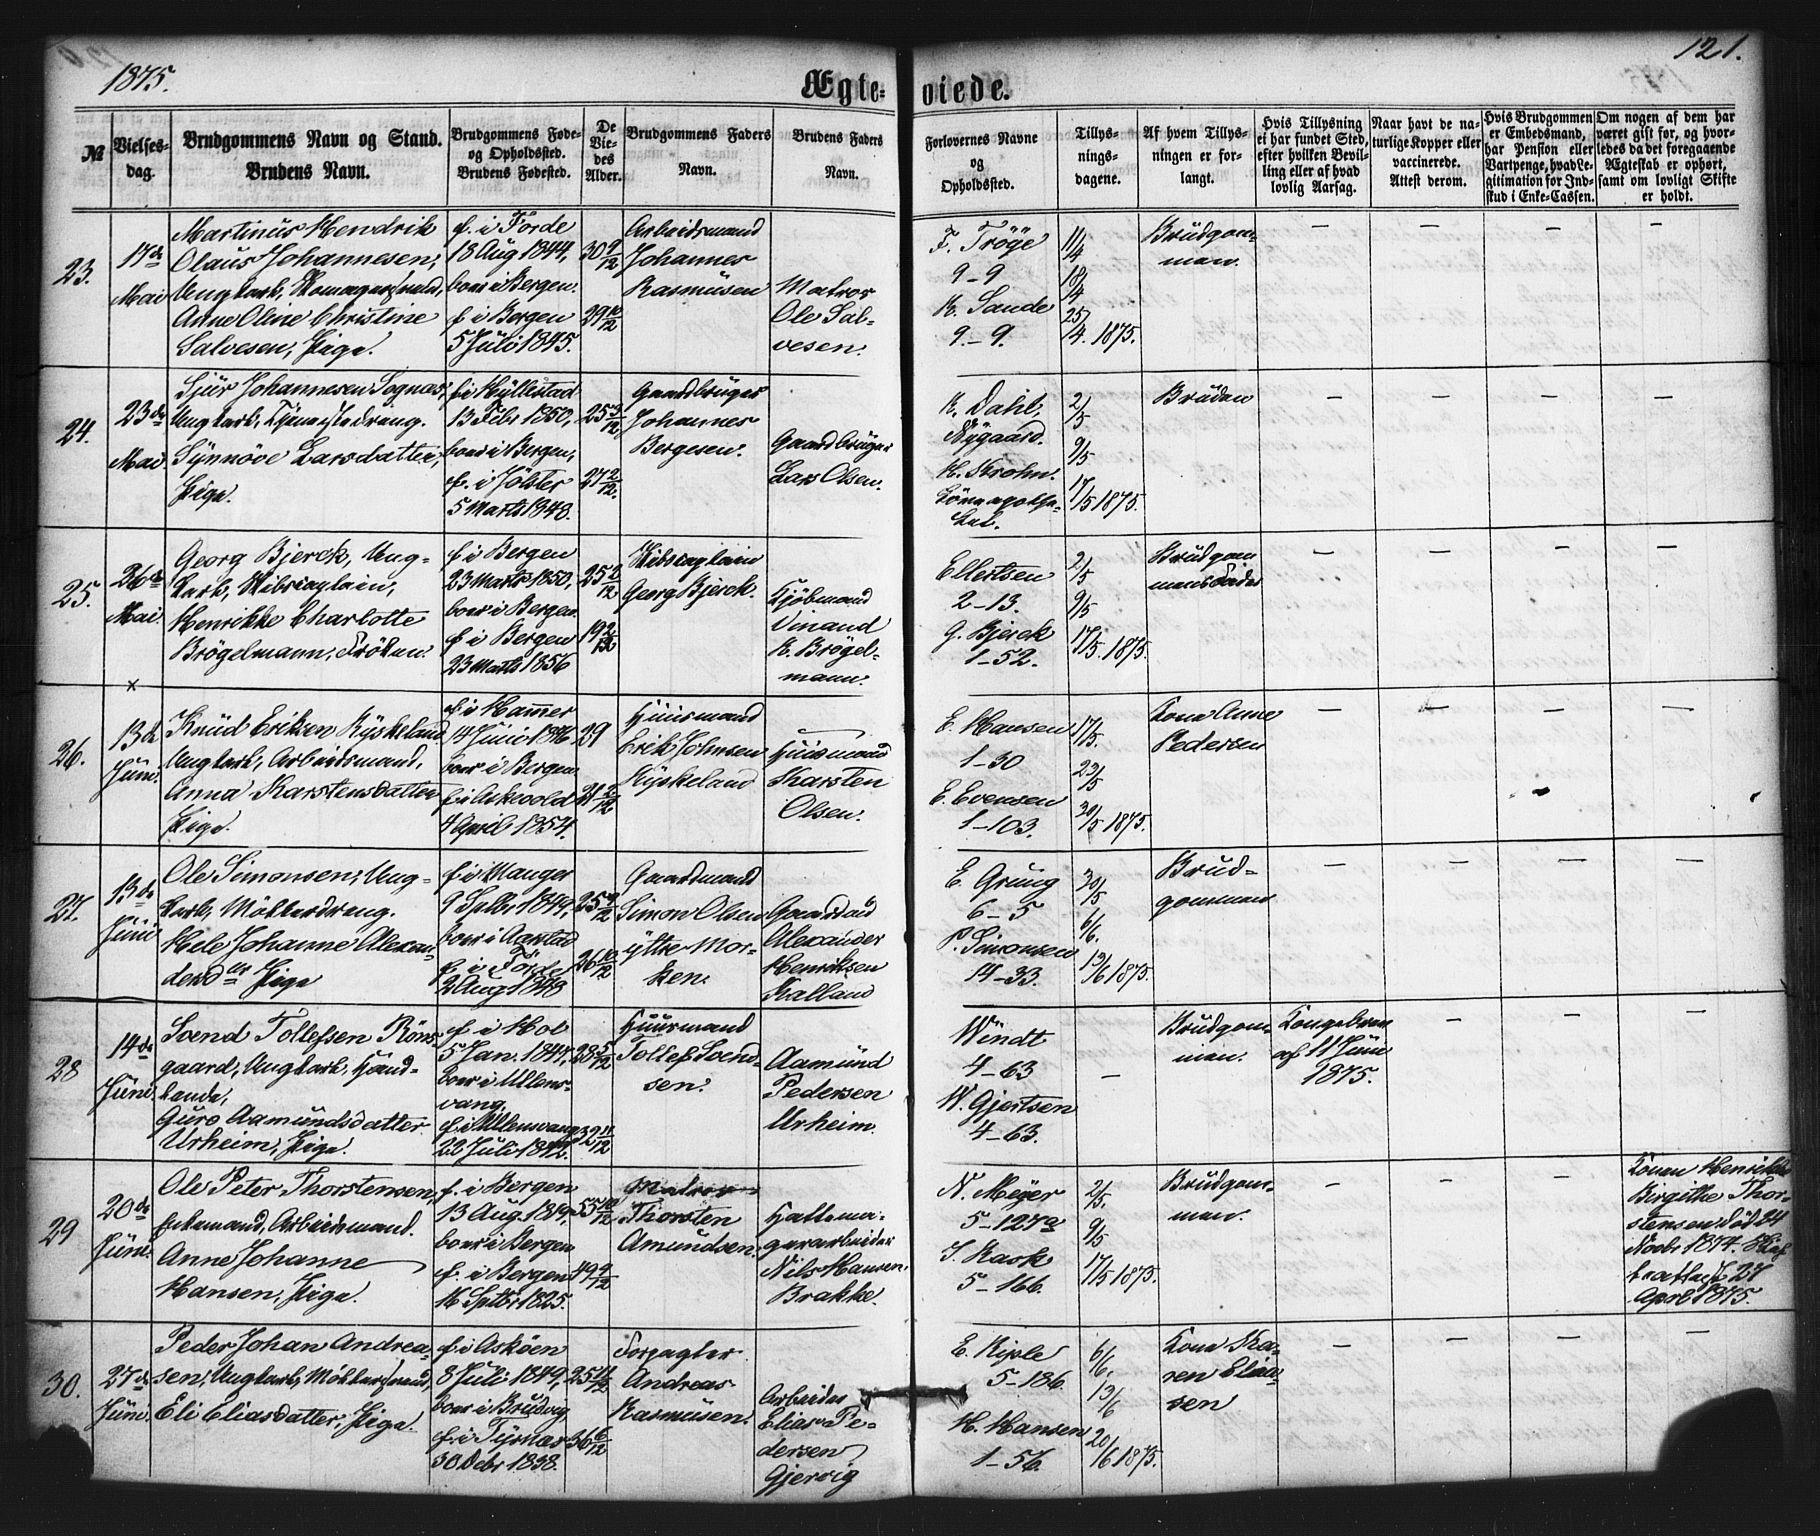 1875.
Ægte-
viede.
121.
№
Vielses-
dag.
Brudgommens Navn og Stand.
Brudens Navn.
Brudgommens Føde-
og Opholdssted.
Brudens Fødested.
De
Vie-
des
Alder.
Brudgommens Faders
Navn.
Brudens Faders
Navn.
Forlovernes Navne
og
Opholdssted.
Tillys-
nings-
dagene.
Af hvem Tillys-
ningen er for-
langt.
Hvis Tillysning
ei har fundet Sted,
efter hvilken Bevil-
ling eller af hvad
lovlig Aarsag.
Naar havt de na-
turlige Kopper eller
vaccinerede.
Attest derom.
Hvis Brudgommen
er Embedsmand,
har Pension eller
Vartpenge, hvad Le-
gitimation for Ind-
skud i Enke-Cassen.
Om nogen af dem har
været gift før, og hvor-
ledes da det foregaaende
Ægteskab er ophørt,
samt om lovligt Skifte
er holdt.
23.
17de
Mai
Martinus Hendrik
Olaus Johannesen,
Ungkarl,
Anne Oline Christine
Salvesen, Pige.
f. i Förde
18 Aug 1844,
boer i Bergen.
f. i Bergen
5 Juli 1845.
30 9/12
29 10/12
Arbeidsmand
Johannes
Rasmüsen
Matros
Ole Sal-
vesen.
F. Tröge
9-9
K. Sande
9-9.
11/4
18/4
25/4. 1875.
Brüdgom-
men.
24.
23de
Mai
Sjur Johannesen Sognas,
Ungkarl, Tjenestedreng.
Synnöve Larsdatter,
Pige.
f. i Hyllestad
13 Febr 1850,
boer i Bergen,
f. i Jölster
5 Marts 1848.
25 3/12
27 2/12.
Gaardbruger
Johannes
Bergesen.
Gaardbrüger
Lars Olsen.
K. Dahl,
Nygaard.
H. Krohn.
2/5
9/5
17/5 1875.
Brüden
25.
26de
Mai.
Georg Bjerck, Ung-
karl, Skibscaptain,
Henrikke Charlotte
Brögelmann, Fröken.
f. i Bergen
23 Marts 1850,
boer i Bergen.
f. i Bergen
23 Marts 1856
25 2/12
19 2/12
Skibscaptain
Georg Bjerck.
Kjöbmand
Vinand
K. Brögel-
mann.
Ellertsen
2-13.
G. Bjerck
1-52.
2/5
9/5
17/5. 1875.
Brüdgom
mens Fader
×
26.
13de
Juni.
Knüd Eriksen Kyskeland
Ungkarl, Arbeidsmand,
Anna Karstensdatter
Pige.
f. i Hammer
14 Juni 1846.
boer i Bergen.
f. i Askevold
4 April 1854.
29
21 2/12
Huusmand
Erik Johnsen
Kyskeland
Huusmand
Karsten
Olsen.
E. Hansen
1-30
E. Evensen
1-103.
17/5.
23/5
30/5 1875.
Kone Anne
Pedersen
27.
13de
Juni
Ole Simonsen, Ung-
karl, Møllerdreng.
Hele Johanne Alexan-
dersdtr Pige
f. i Manger
9 Sptbr 1849,
boer i Aarstad
f. i Förde
2 Aug 1848
25 9/12
26 10/12
Gaardmand
Simon Olsen
ytre Mor-
ken.
Alexander
Henriksen
Kalland
E. Grung
6-5
P. Simonsen
14-33.
30/5
6/6.
13/6 1875.
Brud-
gommen
28
14de
Juni
Svend Tollefsen Röns-
gaard, Ungkarl, Hand-
lende,
Guro Aamundsdatter
Urheim, Pige.
f. i Hol
5 Jan. 1847,
boer i Ullens-
vang.
f. i Ullensvang
22 Juli 1842.
28 5/12
32 11/12
Huusmand
Tollef Svend-
sen.
Aamünd
Pedersen
Urheim.
Windt
4-63
W. Gjertsen
4-63.
Brüdgom-
men.
Kongebrev
af 11 Juni
1875.
29
20de
Juni.
Ole Peter Thorstensen,
Enkemand, Arbeidsmand.
Anne Johanne
Hansen, Pige.
f. i Bergen
13 Aug 1819,
boer i Bergen
f. i Bergen
16 Sptbr. 1825.
55 10/12
49 9/12
Matros
Thorsten
Amundsen.
Hattema-
gerarbeider
Nils Hansen
Brakke.
N. Meyer
5-127a
J. Rask
5-166.
2/5.
9/5
17/5 1875.
Brüdgom-
men.
Konen Henrikke
Birgithe Thor-
stensen död 24
Novbr 1874.
27
April 1875.
30.
27de
Juni.
Peder Johan Andrea-
sen, Ungkarl, Møllersvend,
Eli Eliasdatter, Pige.
f. i Asköen
8 Juli 1849,
boer i Brudvig
f. i Tysnæs
30 Debr 1838.
25 11/12
36 6/12
Forpagter
Andreas
Rasmüsen.
Arbeider
Elias Pe-
dersen
Gjervig
E. Kiple
5-186.
H. Hansen
1-56.
6/6.
13/6
20/6 1875.
Kone Ka-
ren Elia-
sen